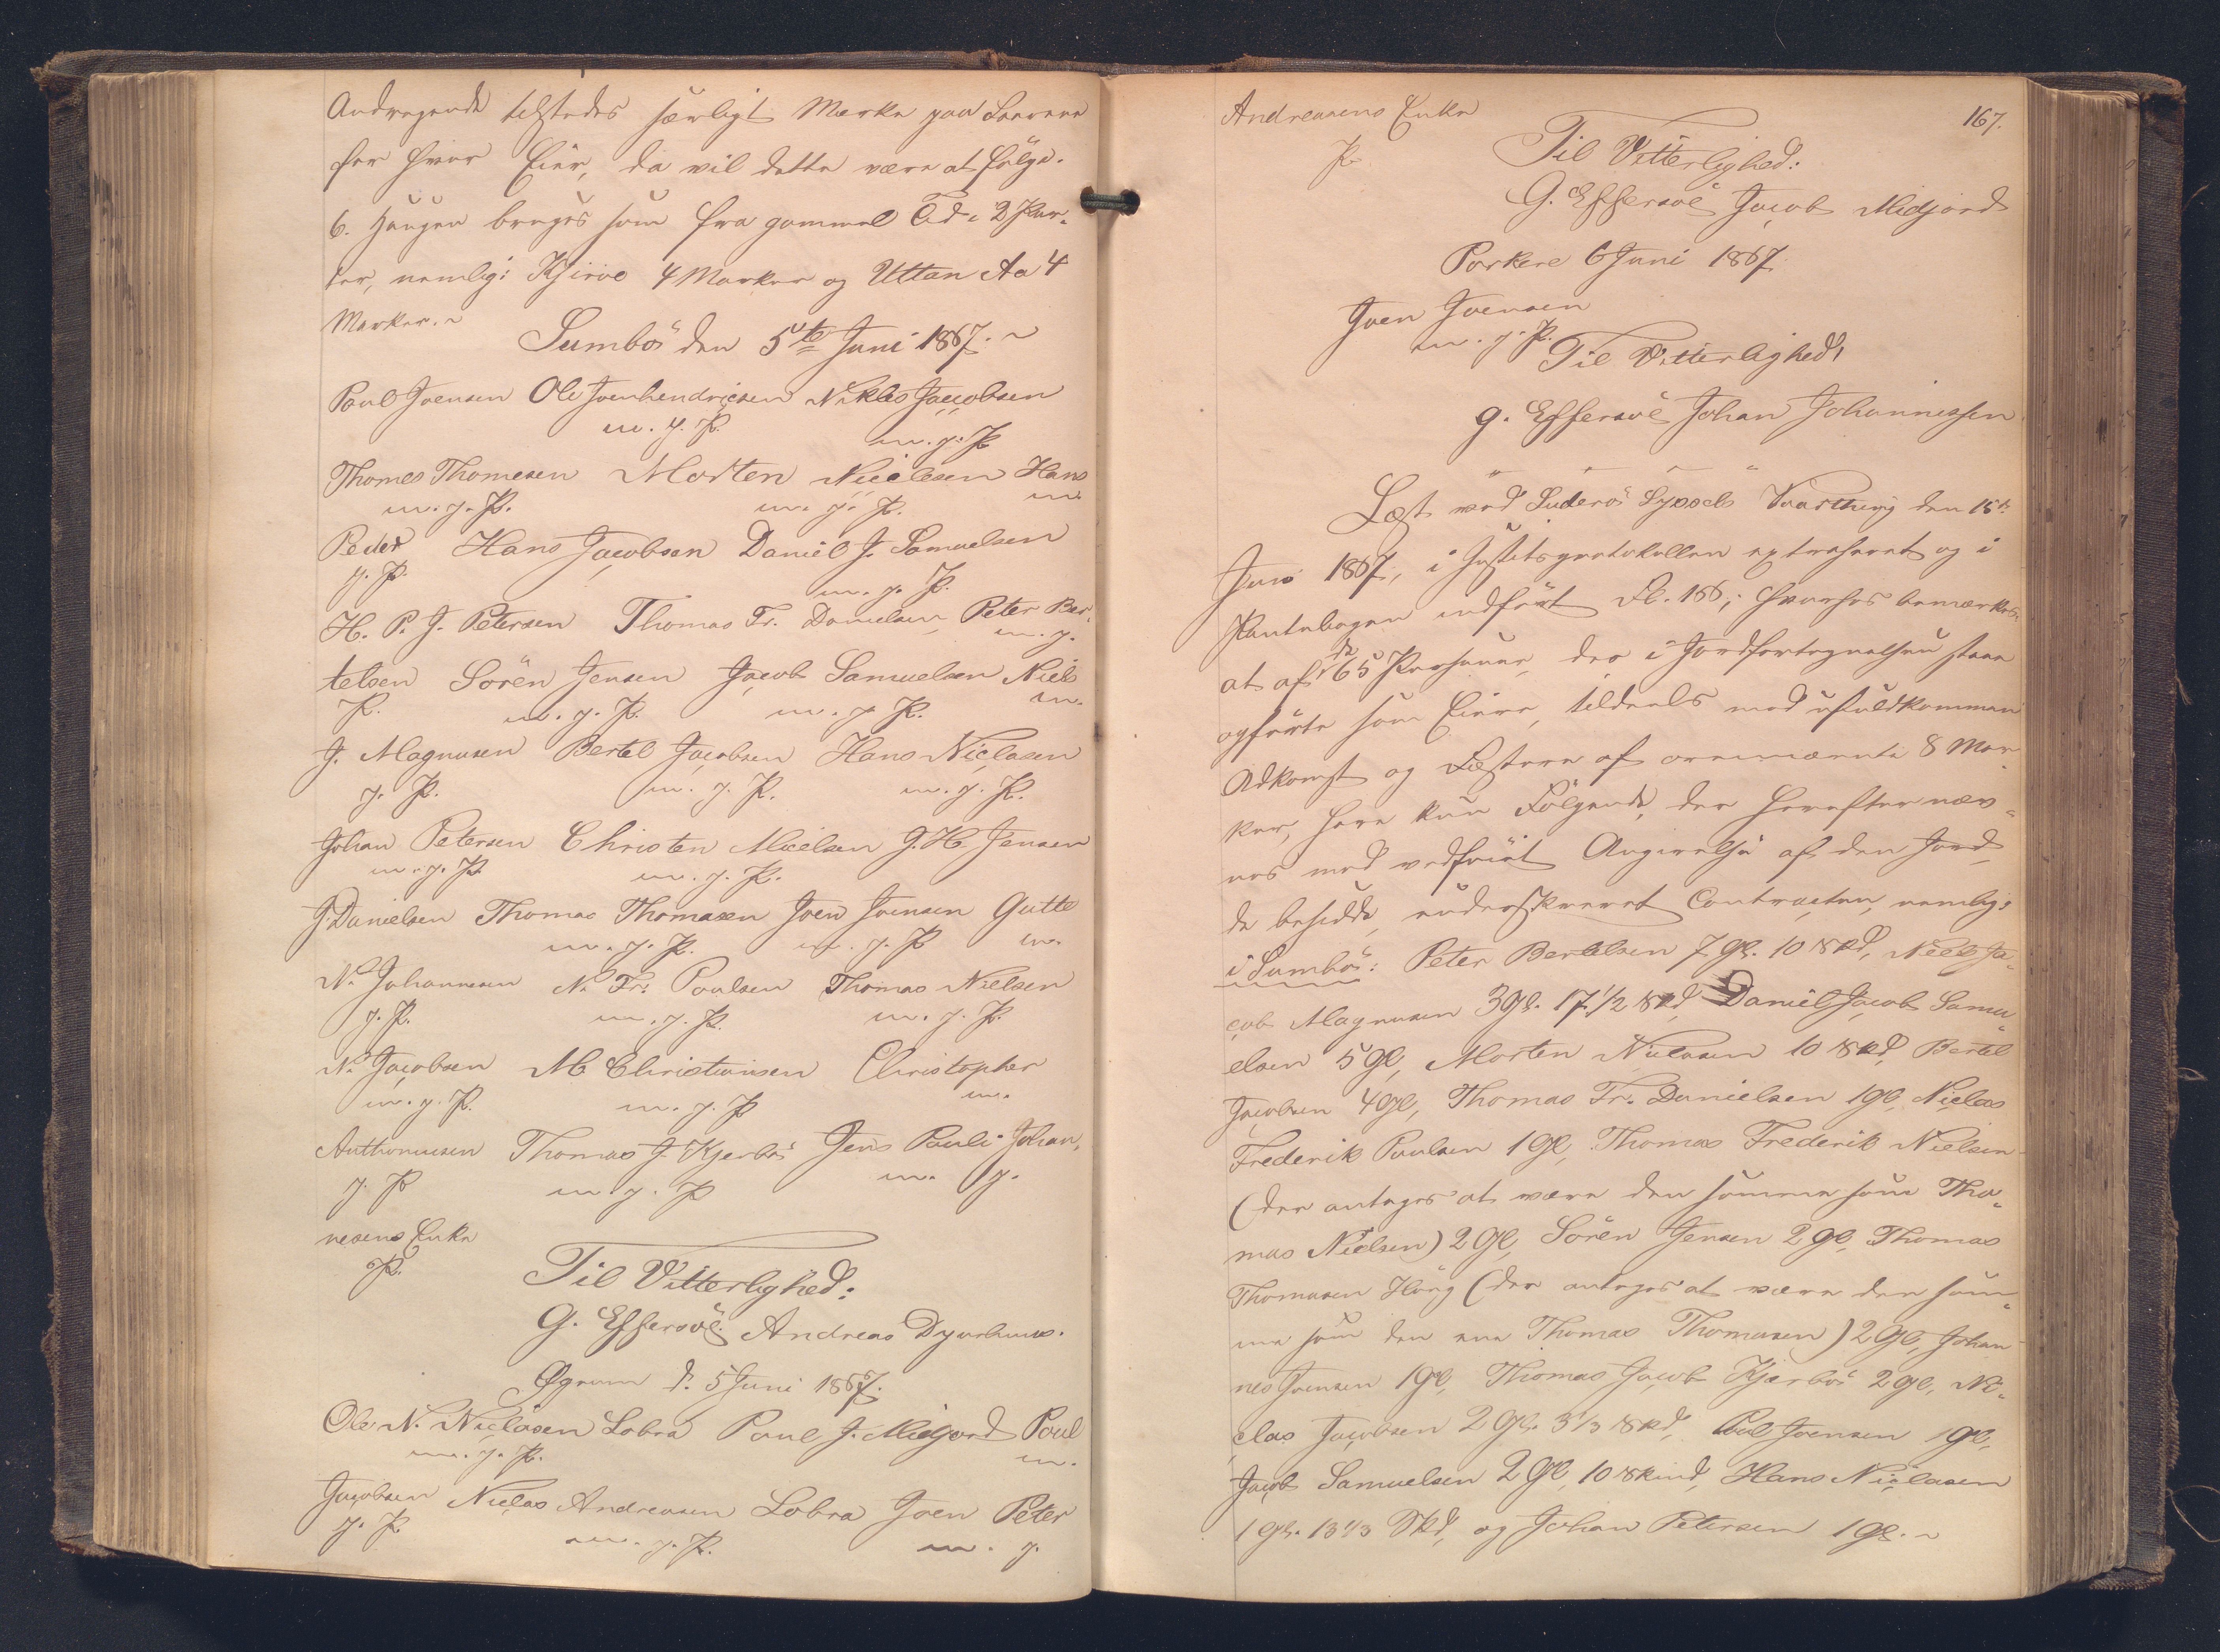 Andragende tilstedes særligt Mærke paa Faarene
for hver Eier, da vil dette være at følge.
6. Haugen bruges som fra gammel Tid i 2 Par-
ter, nemlig: Kjirve 4 Marker og Uttan Aa 4
Marker. ~
Sumbö den 5te Juni 1867. ~
Poul Joensen Ole Joenhendricsen Niklas Jacobsen
m. f. P. m. f. P.
Thomas Thomesen Morten Niclesen Hans
m. f. P. m. f. P. m.
Peder Hans Jacobsen Daniel J. Samuelsen
f. P. m. f. P.
H. P. J. Petersen Thomas Fr. Danielsen Peter Ber-
m. f.
telsen Sören Jensen Jacob Samuelsen Niels
P. m. f. P. m. f. P. m.
J. Magnusen Bertel Jacobsen Hans Niclasen
f. P. m. f. P. m. f. P.
Johan Petersen Christen Nicelsen J. H. Jensen
m. f. P. m. f. P.
J. Danielsen Thomas Thomasen Joen Joensen Gutte
m. f. P. m. f. P. m.
N. Johannesen N. Fr. Poulsen Thomas Nielsen
f. P. m. f. P. m. f. P.
N. Jacobsen M. Christiansen Christopher
m. f. P. m. f. P. m.
Anthoniusen Thomas J. Kjerbö Jens Pauli Johan-
f. P. m. f. P. m. f.
nesens Enke
P.
Til Vitterlighed:
G. Effersöe. Andreas Dyurhuus.
Ögrum d. 5 Juni 1867.
Ole N. Niclasen Lobra Poul J. Midjord Poul
m. f. P. m.
Jacobsen Niclas Andreasen Lobra Joen Peter
f. P. m. f. P. m. f.
Andreasens Enke
167.
P.
Til Vitterlighed:
G. Effersöe Jacob Midjord
Porkere 6 Juni 1867
Joen Joensen
m. f. P.
Til Vitterlighed:
G. Effersöe Johan Johannessen
Læst ved Suderö Syssels Vaarthing den 15de
Juni 1867, i Justitsprotokollen extraheret og i
Pantebogen indført Fl. 166; hvorhos bemærkes,
at af de 65 Personer, der i Jordfortegnelsen staae
opførte som Eiere, tildeels med ufuldkommen
Adkomst og Fæstere af ovennævnte 8 Mar-
ker, have kun Følgende, der herefter næv-
nes med vedføiet Angivelse af den Jord
de besidde, underskrevet Contracten, nemlig:
i Sumbö: Peter Bertelsen 7 Gl. 10 Skd, Niels Ja-
cob Magnusen 3 Gl. 17 1/2 Skd Daniel Jacob Samu-
elsen 5 Gl, Morten Niclasen 10 Skd, Bertel
Jacobsen 4 Gl, Thomas Fr. Danielsen 1 Gl, Niclas
Frederik Poulsen 1 Gl, Thomas Frederik Nielsen
(der antages at være den samme som Tho-
mas Nielsen) 2 Gl, Sören Jensen 2 Gl, Thomas
Thomasen Hörg (der antages at være den sam-
me som den ene Thomas Thomasen) 2 Gl, Johan-
nes Joensen 1 Gl, Thomas Jacob Kjerbö 2 Gl, Ni-
clas Jacobsen 2 Gl. 3 1/3 Skd, Poul Joensen 1 Gl,
Jacob Samuelsen 2 Gl, 10 Skind, Hans Niclasen
1 Gl. 13 1/3 Skd, og Johan Petersen 1 Gl. ~